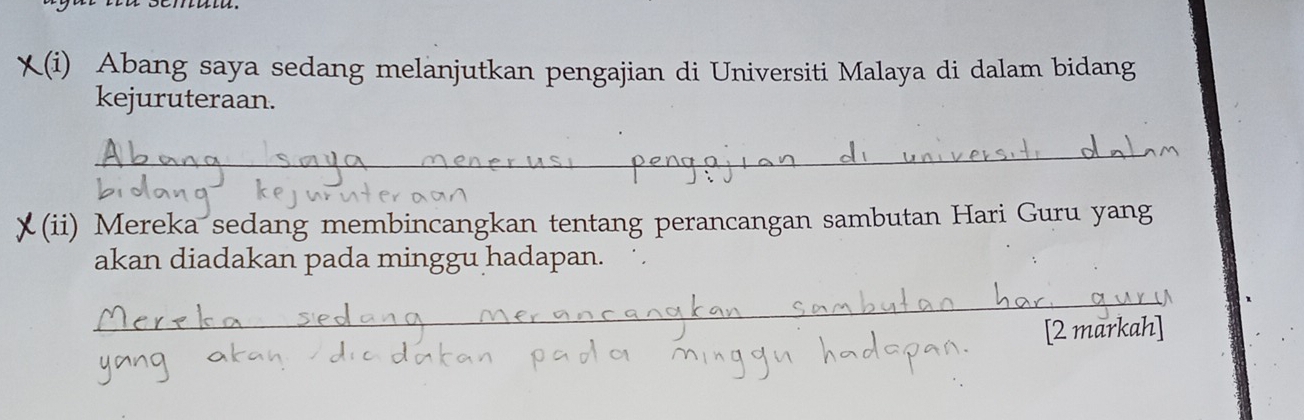 (i) Abang saya sedang melanjutkan pengajian di Universiti Malaya di dalam bidang
kejuruteraan.
Abang saya menerusi pengajian di universiti dalam
bidang kejuruteraan
(ii) Mereka sedang membincangkan tentang perancangan sambutan Hari Guru yang
akan diadakan pada minggu hadapan.
Mereka sedang merancangkan sambutan hari guru
[2 markah]
yang akan diadakan pada minggu hadapan.